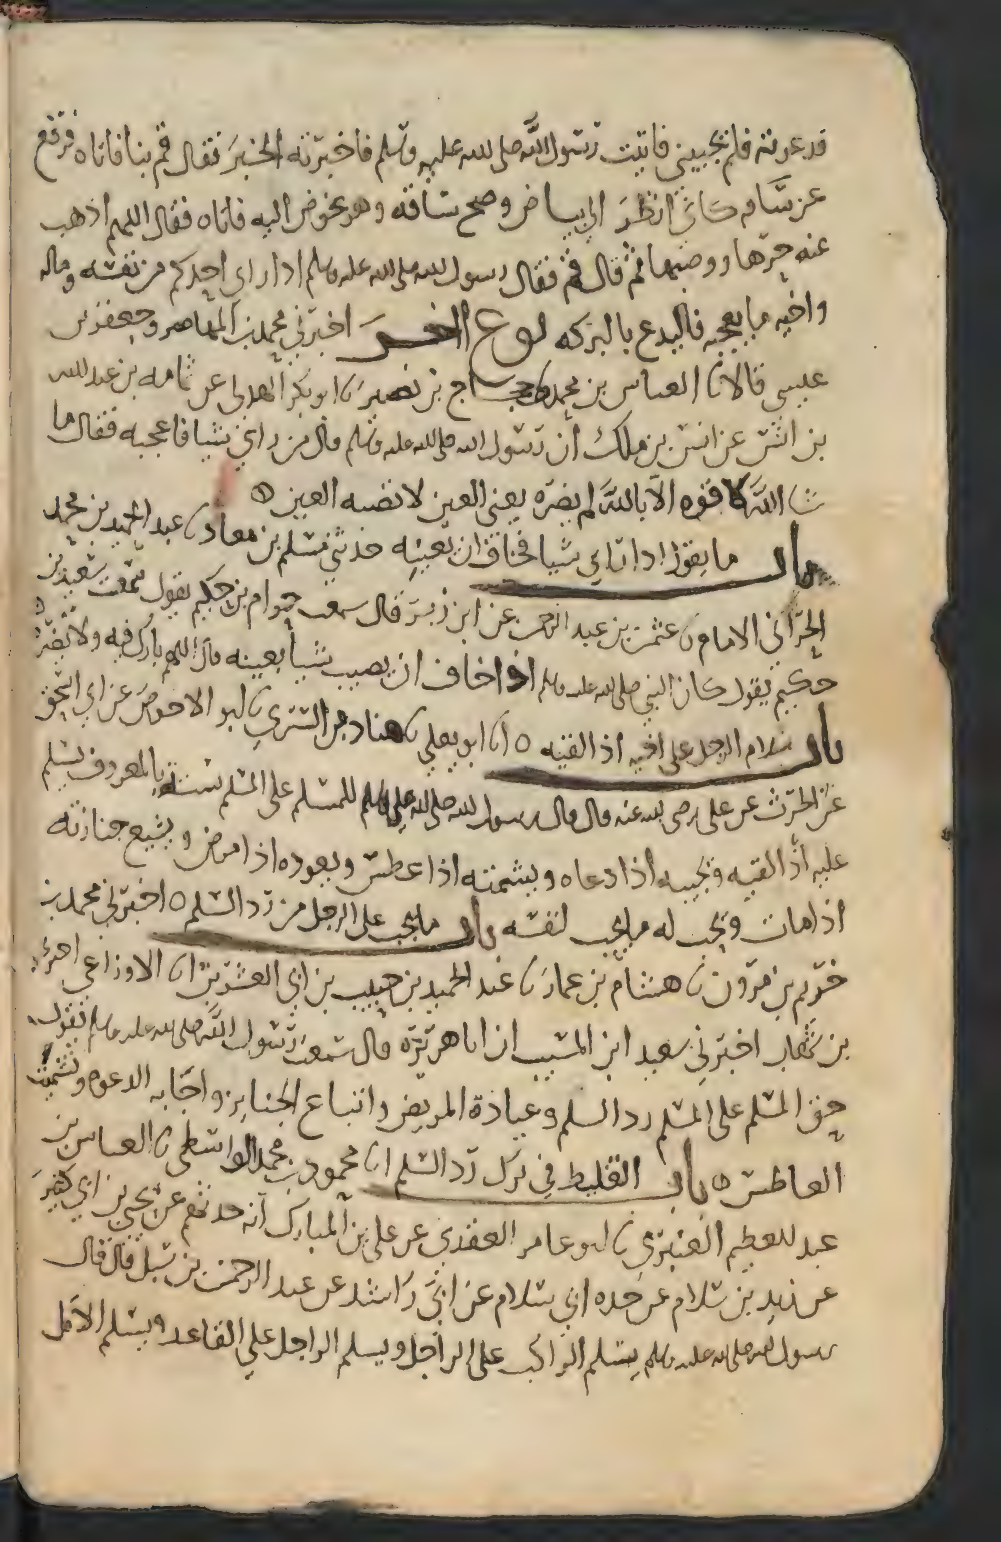 قد عرفته فلم تجيبني فاتيت رسول الله صلى الله عليه وسلم فاخبرته الخبر فقال قم بنا فاتاه فرفع
عن ساقه كاني انظر الى بياض وضح ساقه وهو يخوض اليه فاتاه فقال اللهم اذهب
عنه حرها ووصبها ثم قال قم فقال رسول الله صلى الله عليه وسلم اذا راى احدكم من نفسه وماله
واخيه ما يعجبه فاليدع بالبركه نوع اخر اخبرني محمد بن المهاصر وجعفر بن
عيسى قالا ثنا العباس بن محمد ثنا حجاج بن نصير ثنا ابو بكر الهذلي عن ثمامه بن عبد الله
بن انس عن انس بن ملك ان رسول الله صلى الله عليه وسلم قال من راى شيا فاعجبه فقال ما
شا الله لا قوه الا بالله لم يضره يعني العين لا تصبه العين
باب ما يقول اذا راى شيا فخاف ان يعينه حدثني مسلم بن معاذ ثنا عبد الحميد بن محمد
الحراني الامام ثنا عثمن بن عبد الرحمن عن ابن زبر قال سمعت حزام بن حكيم يقول سمعت سعيد بن
حكيم يقول كان النبي صلى الله عليه وسلم اذا خاف ان يصيب شيا بعينه قال اللهم بارك فيه ولا تضره
باب سلام الرجل على اخيه اذا لقيه انا ابو يعلى ثنا هناد بن السري ثنا ابو الاحوص عن ابي اسحق
عن الحرث عن علي رضى الله عنه قال قال رسول الله صلى الله عليه وسلم للمسلم على المسلم ستة بالمعروف يسلم
عليه اذا لقيه ويجيبه اذا دعاه ويشمته اذا عطس ويعوده اذا مرض ويشيع جنازته
اذا مات ويحب له ما يحب لنفسه باب ما يجب على الرجل من رد السلم اخبرني محمد بن
خريم بن مرون ثنا هشام بن عمار ثنا عبد الحميد بن حبيب بن ابي العشرين ثنا الاوزاعي
بن شهاب اخبرني سعيد ابن المسيب ان ابا هريره قال سمعت رسول الله صلى الله عليه وسلم يقول
حق المسلم على المسلم رد السلم وعيادة المريض واتباع الجنايز واجابه الدعوه وتشميت
العاطس باب التغليظ في ترك رد السلم انا محمود بن محمد الواسطي ثنا العباس بن
عبد العظيم العنبري ثنا ابو عامر العقدي عن علي بن المبارك انه حدثهم عن يحيى بن ابي كثير
عن زيد بن سلام عن جده ابي سلام عن ابي راشد عن عبد الرحمن بن شبل قال قال
رسول الله صلى الله عليه وسلم يسلم الراكب على الراجل ويسلم الراجل على القاعد ويسلم الاقل